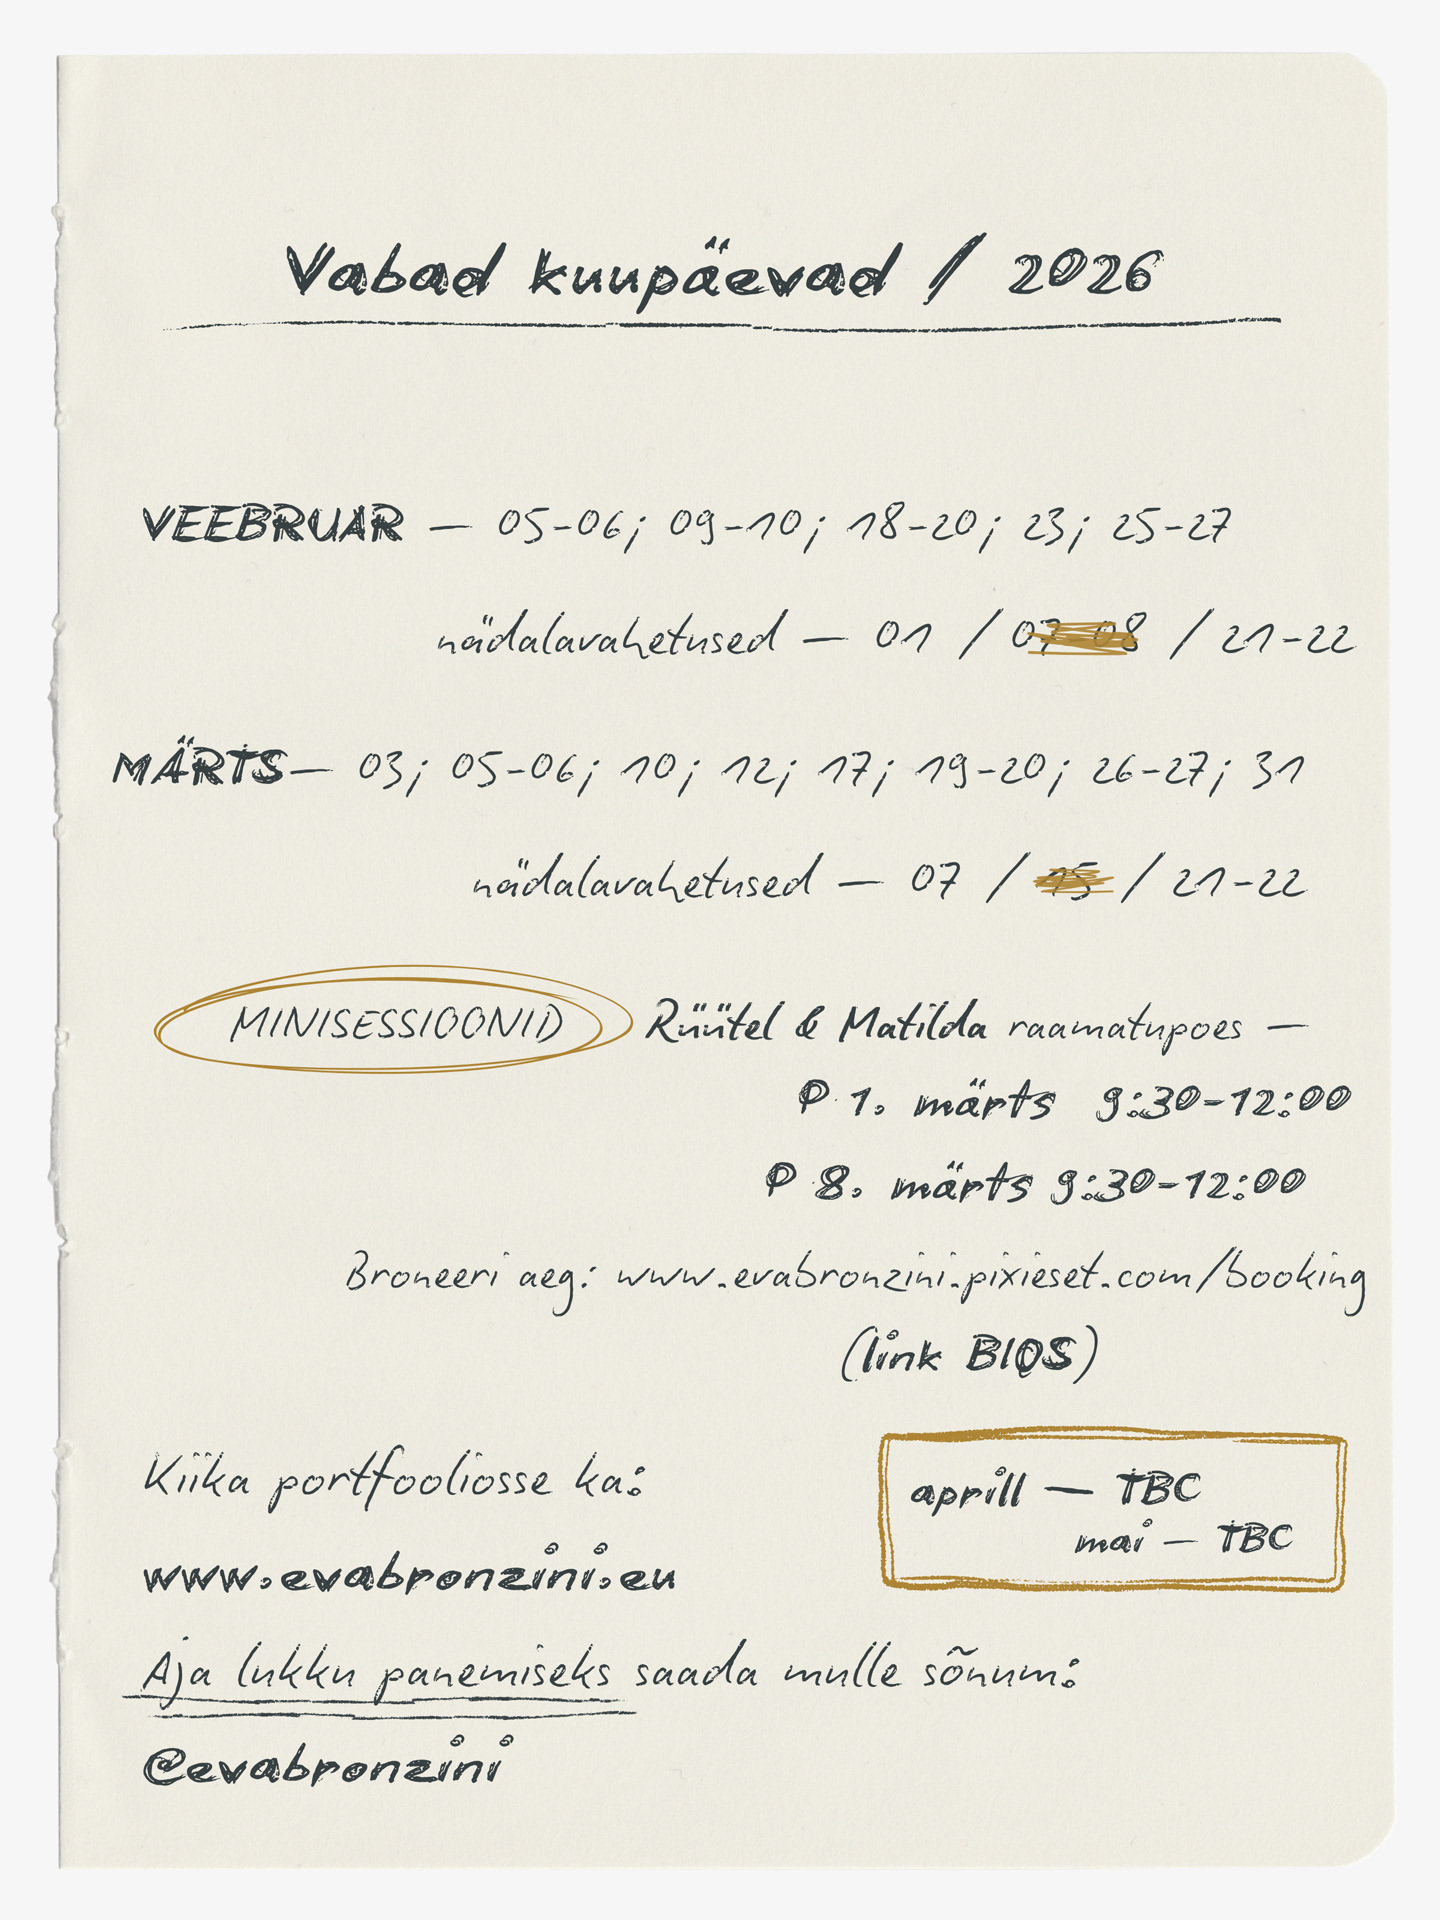 Vabad kuupäevad / 2026
VEEBRUAR — 05-06; 09-10; 18-20; 23; 25-27
nädalavahetused — 01 / 07-08 / 21-22
MÄRTS — 03; 05-06; 10; 12; 17; 19-20; 26-27; 31
nädalavahetused — 07 / 15 / 21-22
MINISESSIOONID Rüütel & Matilda raamatupoes —
P 1. märts 9:30-12:00
P 8. märts 9:30-12:00
Broneeri aeg: www.evabronzini.pixieset.com/booking
(link BIOS)
Kiika portfooliosse ka:
aprill — TBC
mai — TBC
www.evabronzini.eu
Aja lukku panemiseks saada mulle sõnum:
@evabronzini